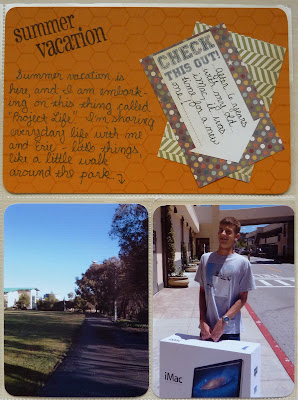 summer
vacation
Summer vacation is
here and I am embark-
ing on this thing called
"Project Life". I'm sharing
everyday life with me
and Eric - little things,
like a little walk
around the park.
CHECK
THIS OUT
After years
with my old
iMac, it was
time for a new
one...
iMac